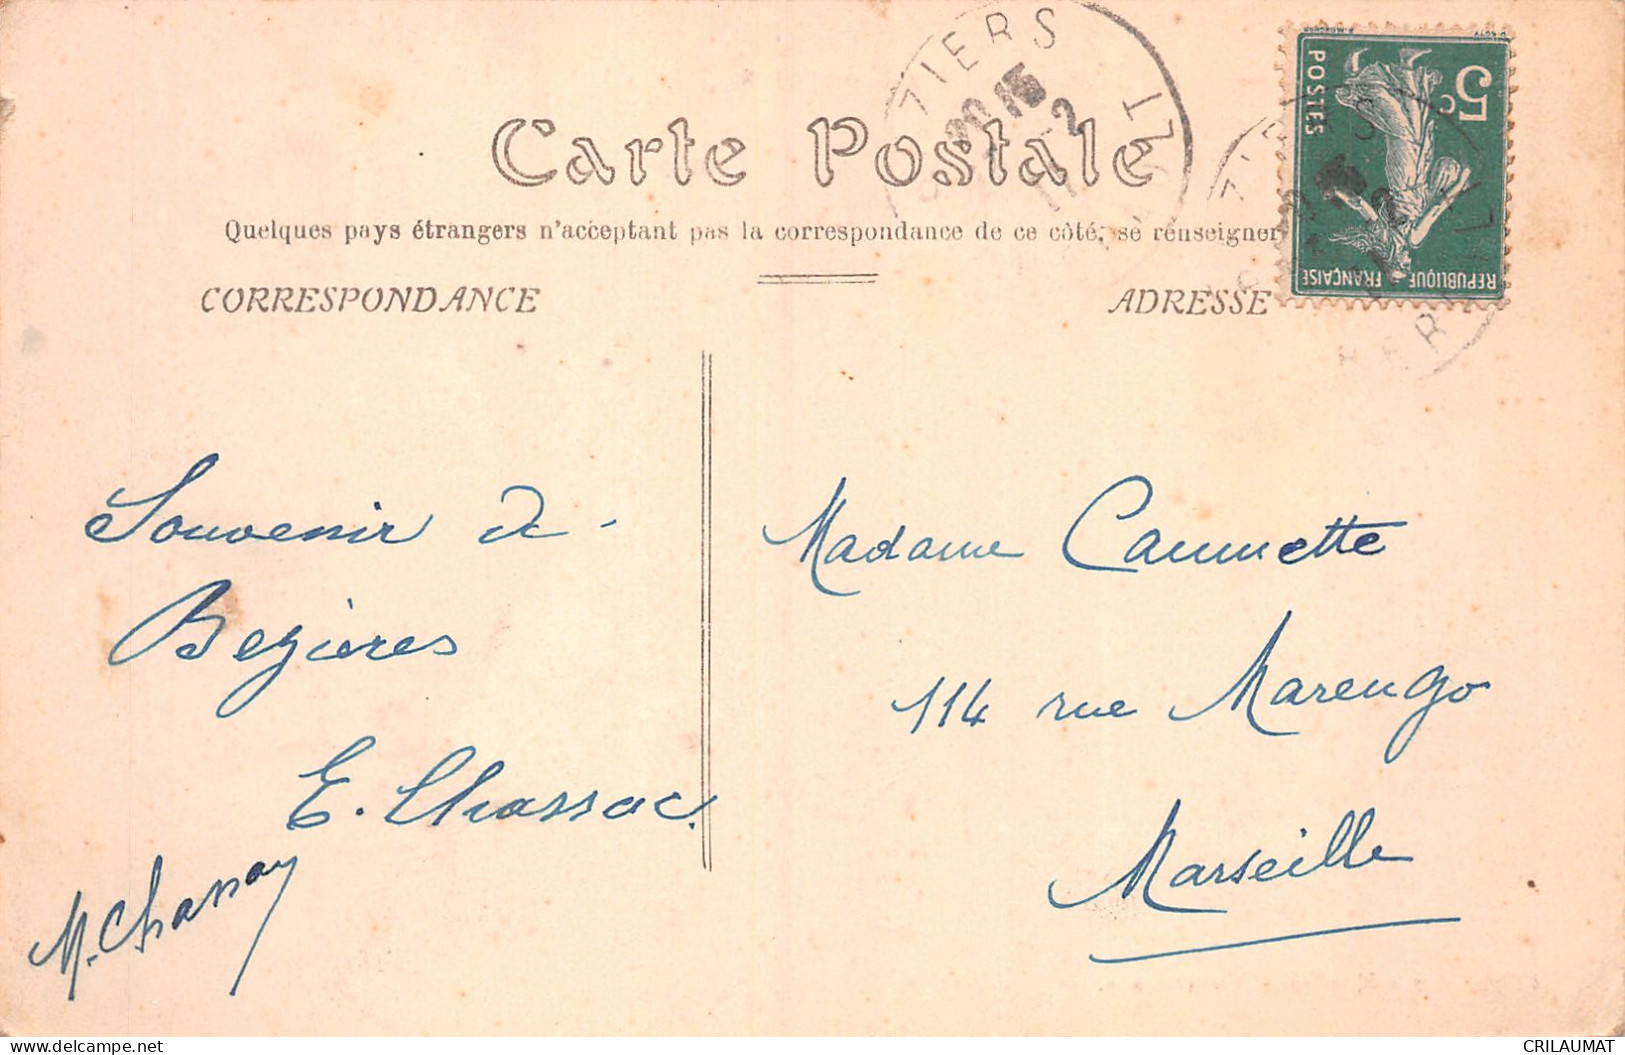 Carte Postale
Quelques pays étrangers n'acceptant pas la correspondance de ce côté, se renseigner
CORRESPONDANCE
ADRESSE
5c
POSTES
REPUBLIQUE FRANÇAISE
ZIERS
20 15
2
Souvenir de
Bezières
E. Chassac.
M. Chassay
Madame Caumette
114 rue Marengo
Marseille
www.delcampe.net
CRILAUMAT